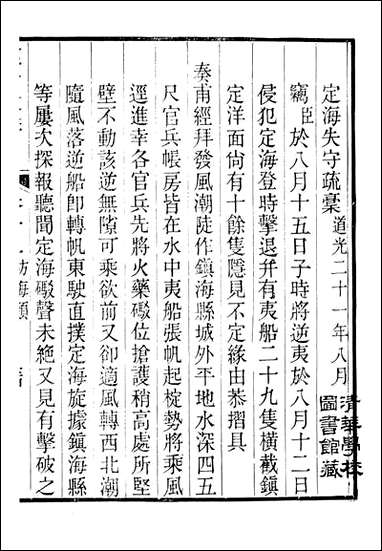 定海失守疏稾道光二十一年八月
竊臣於八月十五日子時將逆夷於八月十二日
侵犯定海登時擊退并有夷船二十九隻橫截鎭
定洋面尙有十餘隻隱見不定緣由恭摺具
奏甫經拜發風潮陡作鎭海縣城外平地水深四五
尺官兵帳房皆在水中夷船張帆起椗勢將乘風
逕進幸各官兵先將火藥礮位搶護稍高處所堅
壁不動該逆無隙可乘欲前又卻適風轉西北潮
隨風落逆船卽轉帆東駛直撲定海旋據鎭海縣
等屢次探報聽聞定海礮聲未絕又見有擊破之
防海類
清華學校
圖書館藏